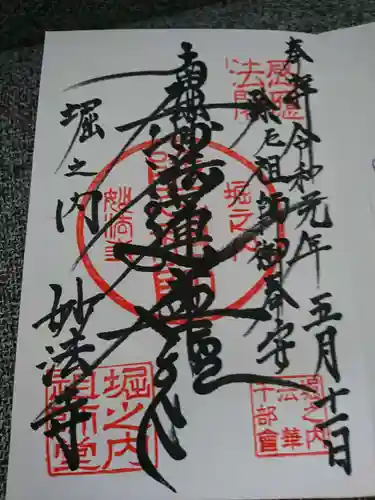 奉拝 令和元年五月十二日
除厄祖師御奉安
南無妙法蓮華経
堀之内
妙法寺
感應
法閣
堀之内
妙法寺
堀之内
祖師堂
堀之内
法華
千部會